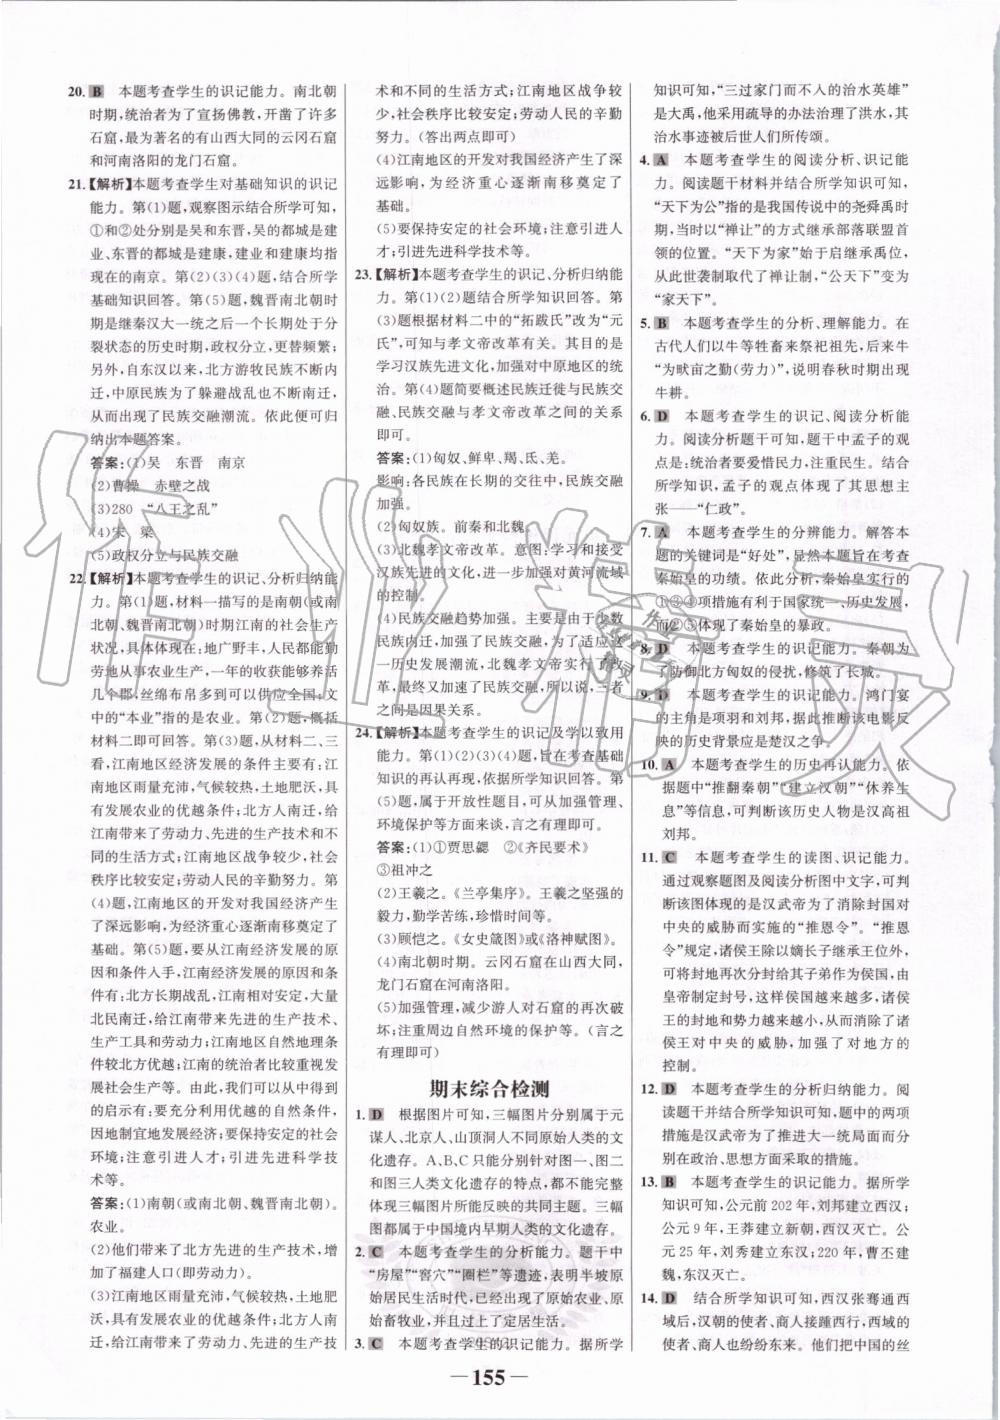 20. B 本题考查学生的识记能力。南北朝
时期,统治者为了宣扬佛教,开凿了许多
石窟,最为著名的有山西大同的云冈石窟
和河南洛阳的龙门石窟。
21.【解析】本题考查学生对基础知识的识记
能力。第(1)题,观察图示结合所学可知,
①和②处分别是吴和东晋,吴的都城是建
业、东晋的都城是建康,建业和建康均指
现在的南京。第(2)(3)(4)题,结合所学
基础知识回答。第(5)题,魏晋南北朝时
期是继秦汉大一统之后一个长期处于分
裂状态的历史时期,政权分立,更替频繁;
另外,自东汉以来,北方游牧民族不断内
迁,中原民族为了躲避战乱也不断南迁,
从而出现了民族交融潮流。依此便可归
纳出本题答案。
答案:(1)吴 东晋 南京
(2)曹操 赤壁之战
(3)280 “八王之乱”
(4)宋 梁
(5)政权分立与民族交融
22.【解析】本题考查学生的识记、分析归纳能
力。第(1)题,材料一描写的是南朝(或南
北朝、魏晋南北朝)时期江南的社会生产
状况,具体体现在:地广野丰,人民都能勤
劳地从事农业生产,一年的收获能够养活
几个郡,丝绵布帛多到可以供应全国;文
中的“本业”指的是农业。第(2)题,概括
材料二即可回答。第(3)题,材料二、三
看,江南地区经济发展的条件主要有:江
南地区雨量充沛,气候较热,土地肥沃,具
有发展农业的优越条件;北方人南迁,给
江南带来了劳动力、先进的生产技术和不
同的生活方式;江南地区战争较少,社会
秩序比较安定;劳动人民的辛勤努力。第
(4)题,江南地区的开发对我国经济产生
了深远影响,为经济重心逐渐南移奠定了
基础。第(5)题,要从江南经济发展的原
因和条件入手,江南经济发展的原因和条
件有:北方长期战乱,江南相对安定,大量
北民南迁,给江南带来先进的生产技术、
生产工具和劳动力;江南地区自然地理条
件较北方优越;江南的统治者比较重视发
展社会生产等。由此,我们可以从中得到
的启示有:要充分利用优越的自然条件,
因地制宜地发展经济;要保持安定的社会
环境;注意引进人才;引进先进科学技
术等。
答案:(1)南朝(或南北朝、魏晋南北朝)。
农业。
(2)他们带来了北方先进的生产技术,增
加了福建人口(即劳动力)。
(3)江南地区雨量充沛,气候较热,土地肥
沃,具有发展农业的优越条件;北方人南
迁,给江南带来了劳动力、先进的生产技
术和不同的生活方式;江南地区战争较
少,社会秩序比较安定;劳动人民的辛勤
努力。(答出两点即可)
(4)江南地区的开发对我国经济产生了深
远影响,为经济重心逐渐南移奠定了
基础。
(5)要保持安定的社会环境;注意引进人
才;引进先进科学技术等。
23.【解析】本题考查学生的识记、分析归纳能
力。第(1)(2)题结合所学知识回答。第
(3)题根据材料二中的“拓跋氏”改为“元
氏”,可知与孝文帝改革有关。其目的是
学习汉族先进文化,加强对中原地区的统
治。第(4)题简要概述民族迁徙与民族交
融、民族交融与孝文帝改革之间的关系
即可。
答案:(1)匈奴、鲜卑、羯、氐、羌。
影响:各民族在长期的交往中,民族交融
加强。
(2)匈奴族。前秦和北魏。
(3)北魏孝文帝改革。意图:学习和接受
汉族先进的文化,进一步加强对黄河流域
的控制。
(4)民族交融趋势加强。主要由于少数
民族内迁,加强了民族交融,为了适应这
一历史发展潮流,北魏孝文帝实行了改
革,最终又加速了民族交融,所以说,三者
之间是因果关系。
24.【解析】本题考查学生的识记及学以致用
能力。第(1)(2)(3)(4)题,旨在考查基础
知识的再认再现,依据所学知识回答。第
(5)题,属于开放型题,可从加强管理、
环境保护等方面来谈,言之有理即可。
答案:(1)①贾思勰 ②《齐民要术》
③祖冲之
(2)王羲之。《兰亭集序》。王羲之坚强的
毅力,勤学苦练,珍惜时间等。
(3)顾恺之。《女史箴图》或《洛神赋图》。
(4)南北朝时期。云冈石窟在山西大同,
龙门石窟在河南洛阳。
(5)加强管理,减少游人对石窟的再次破
坏;注重周边自然环境的保护等。(言之
有理即可)
期末综合检测
1. D 根据图片可知,三幅图片分别属于元
谋人、北京人、山顶洞人不同原始人类的文
化遗存。A、B、C只能分别针对图一、图二
和图三人类文化遗存的特点,都不能完整
体现三幅图片所反映的共同主题。三幅
图都属于中国境内早期人类的文化遗存。
2. C 本题考查学生的分析能力。题干中
“房屋”“窖穴”“圈栏”等遗迹,表明半坡原
始居民生活时代,已经出现了原始农业、原
始畜牧业,过上了定居生活。
3. C 本题考查学生的识记能力。据所学
知识可知,“三过家门而不入的治水英雄”
是大禹,他采用疏导的办法治理了洪水,其
治水事迹被后世人们所传颂。
4. A 本题考查学生的阅读分析、识记能
力。阅读题干材料并结合所学知识可知,
“天下为公”指的是我国传说中的尧舜禹时
期,当时以“禅让”的方式继承部落联盟首
领的首领。“天下为家”始于启继承禹位,
从此世袭制取代了禅让制,“公天下”变为
“家天下”。
5. B 本题考查学生的分析、理解能力。在
古代人们以牛等牲畜来祭祀祖先,后来牛
“为畎亩之勤(劳力)”,说明春秋时期出现
牛耕。
6. D 本题考查学生的识记、阅读分析能
力。阅读分析题干可知,题中孟子的观
点是:统治者要爱惜民力,注重民生。结合
所学知识,孟子的观点体现了其思想主
张——“仁政”。
7. A 本题考查学生的分辨能力。解答本
题的关键词是“好处”,显然本题旨在考查
秦始皇的功绩。依此分析,秦始皇实行的
①③④项措施有利于国家统一、历史发展,
而②⑤体现了秦始皇的暴政。
8. D 本题考查学生的识记能力。秦朝为
了防御北方匈奴的侵扰,修筑了长城。
9. D 本题考查学生的识记能力。鸿门宴
的主角是项羽和刘邦,据此推断该电影反
映的历史背景应是楚汉之争。
10. A 本题考查学生的历史再认能力。依
据题中“推翻秦朝”“建立汉朝”“休养生
息”等信息,可判断该历史人物是汉高祖
刘邦。
11. C 本题考查学生的读图、识记能力。
通过观察题图及阅读分析图中文字,可判
断该图体现的是汉武帝为了消除封国对
中央的威胁而实施的“推恩令”。“推恩
令”规定,诸侯王除以嫡长子继承王位外,
可将封地再次分封给其子弟作为侯国,由
皇帝制定封号,这样侯国越来越多,诸侯
王的封地和势力越来越小,从而消除了诸
侯王对中央的威胁,加强了对地方的
控制。
12. D 本题考查学生的分析归纳能力。阅
读题干并结合所学知识可知,题中的两项
措施是汉武帝为了推进大一统局面而分
别在政治、思想方面采取的措施。
13. B 本题考查学生的识记能力。据所学
知识可知,公元前202年,刘邦建立西汉;
公元9年,王莽建立新朝,西汉灭亡。公
元25年,刘秀建立东汉;220年,曹丕建
魏,东汉灭亡。
14. D 结合所学知识可知,西汉张骞通西
域后,汉朝的使者、商人接踵西行,西域的
使者、商人也纷纷东来。他们把中国的丝
— 155 —
作业精灵